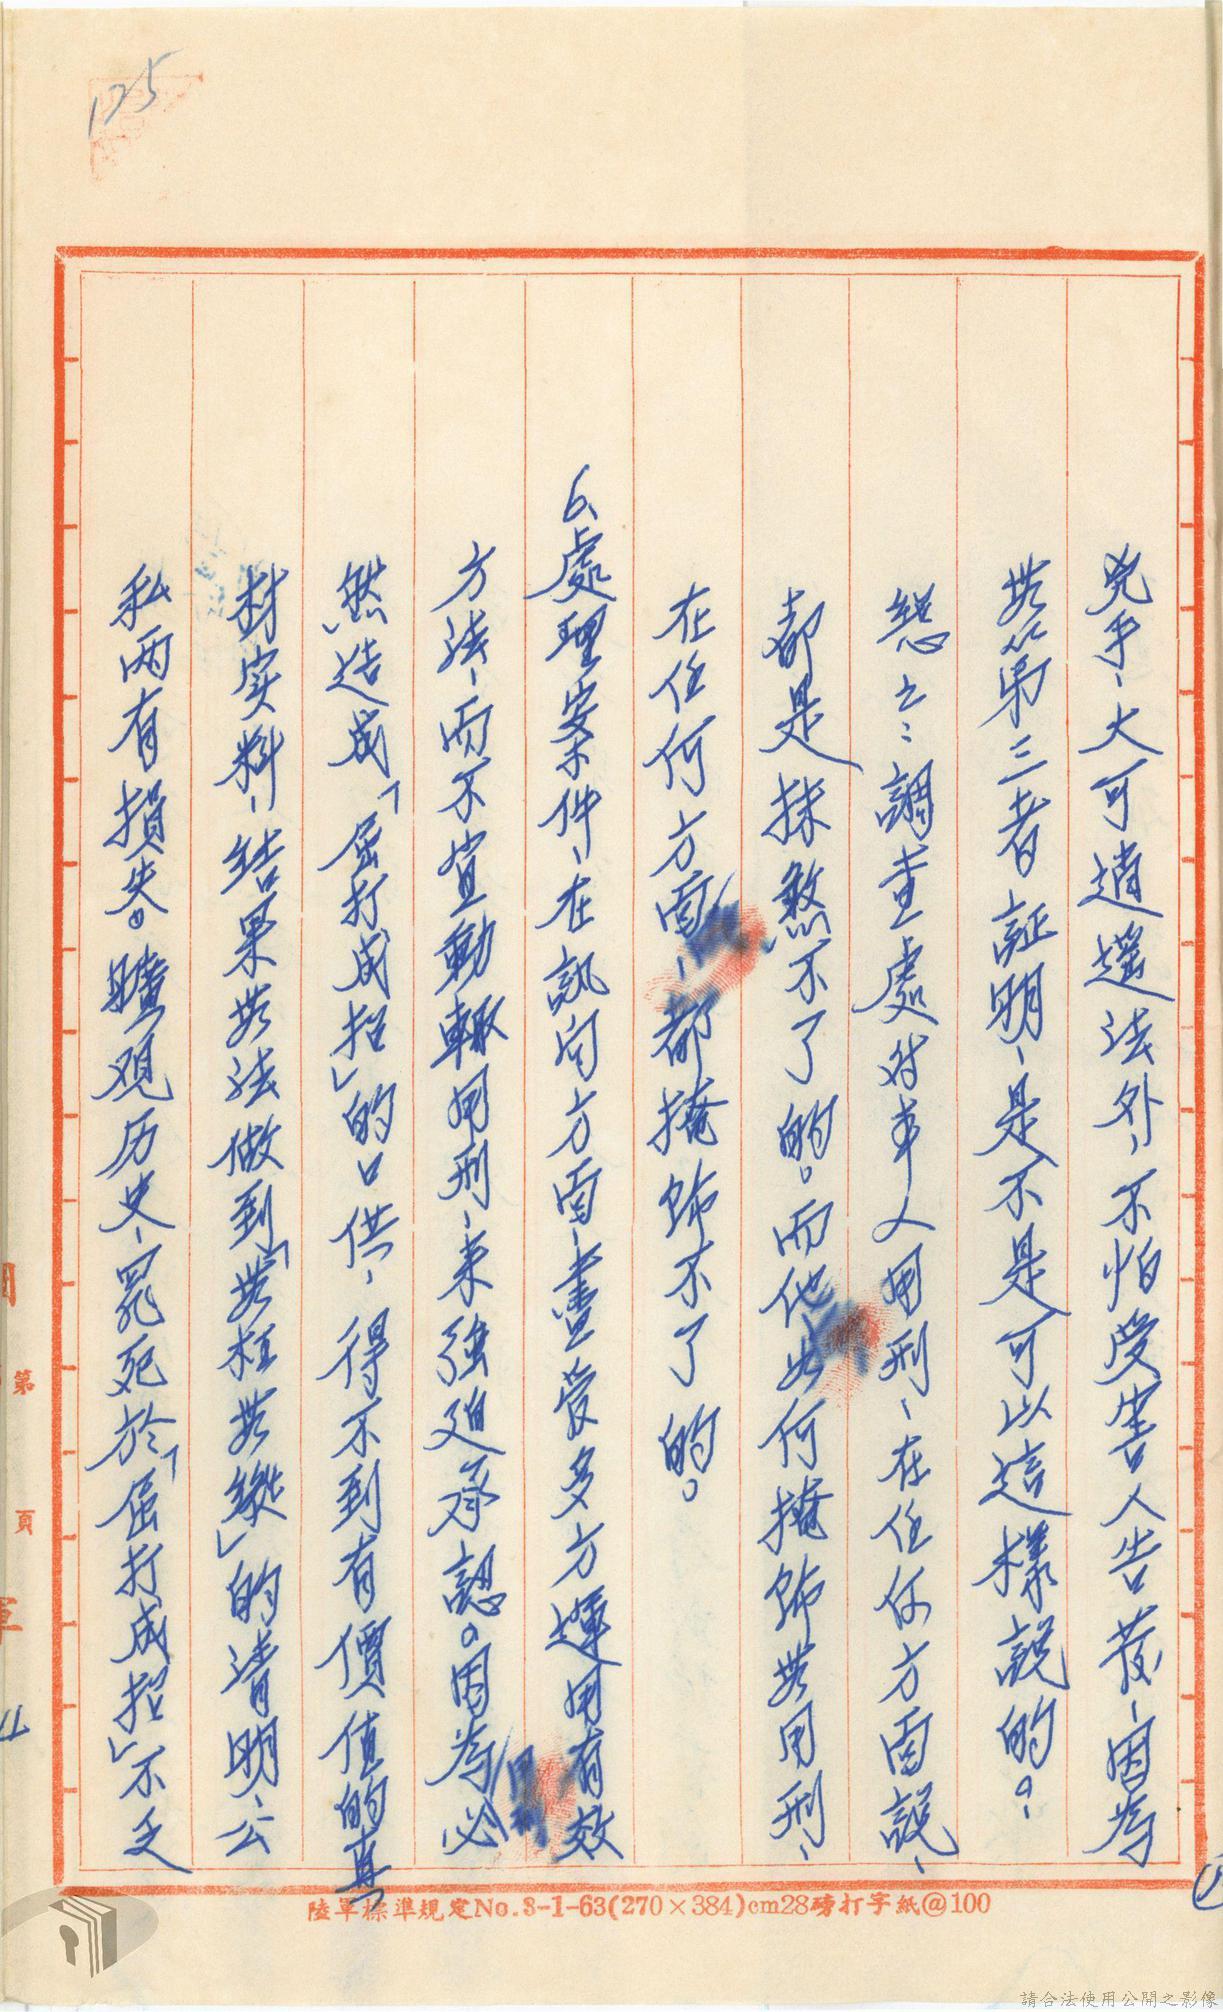 175
兇手、大可逍遥法外、不怕受害人告发、因為
無第三者証明、是不是可以這樣説的。
總之：調查處对本人用刑、在任何方面説、
都是抹煞不了的。而他如何掩飾無用刑、
在任何方面、都掩飾不了的。
6、處理案件、在訊问方面、盡管多方運用有效
方法、而不宜動輒用刑、来強迫承認。因為必
然造成「屈打成招」的口供、得不到有價值的真
材实料、结果無法做到「無枉無縱」的清明、公
私两有損失。曠观历史、冤死於「屈打成招」不乏
第 頁
陸軍標準規定No.8-1-63(270×384)cm28磅打字紙@100
請合法使用公開之影像